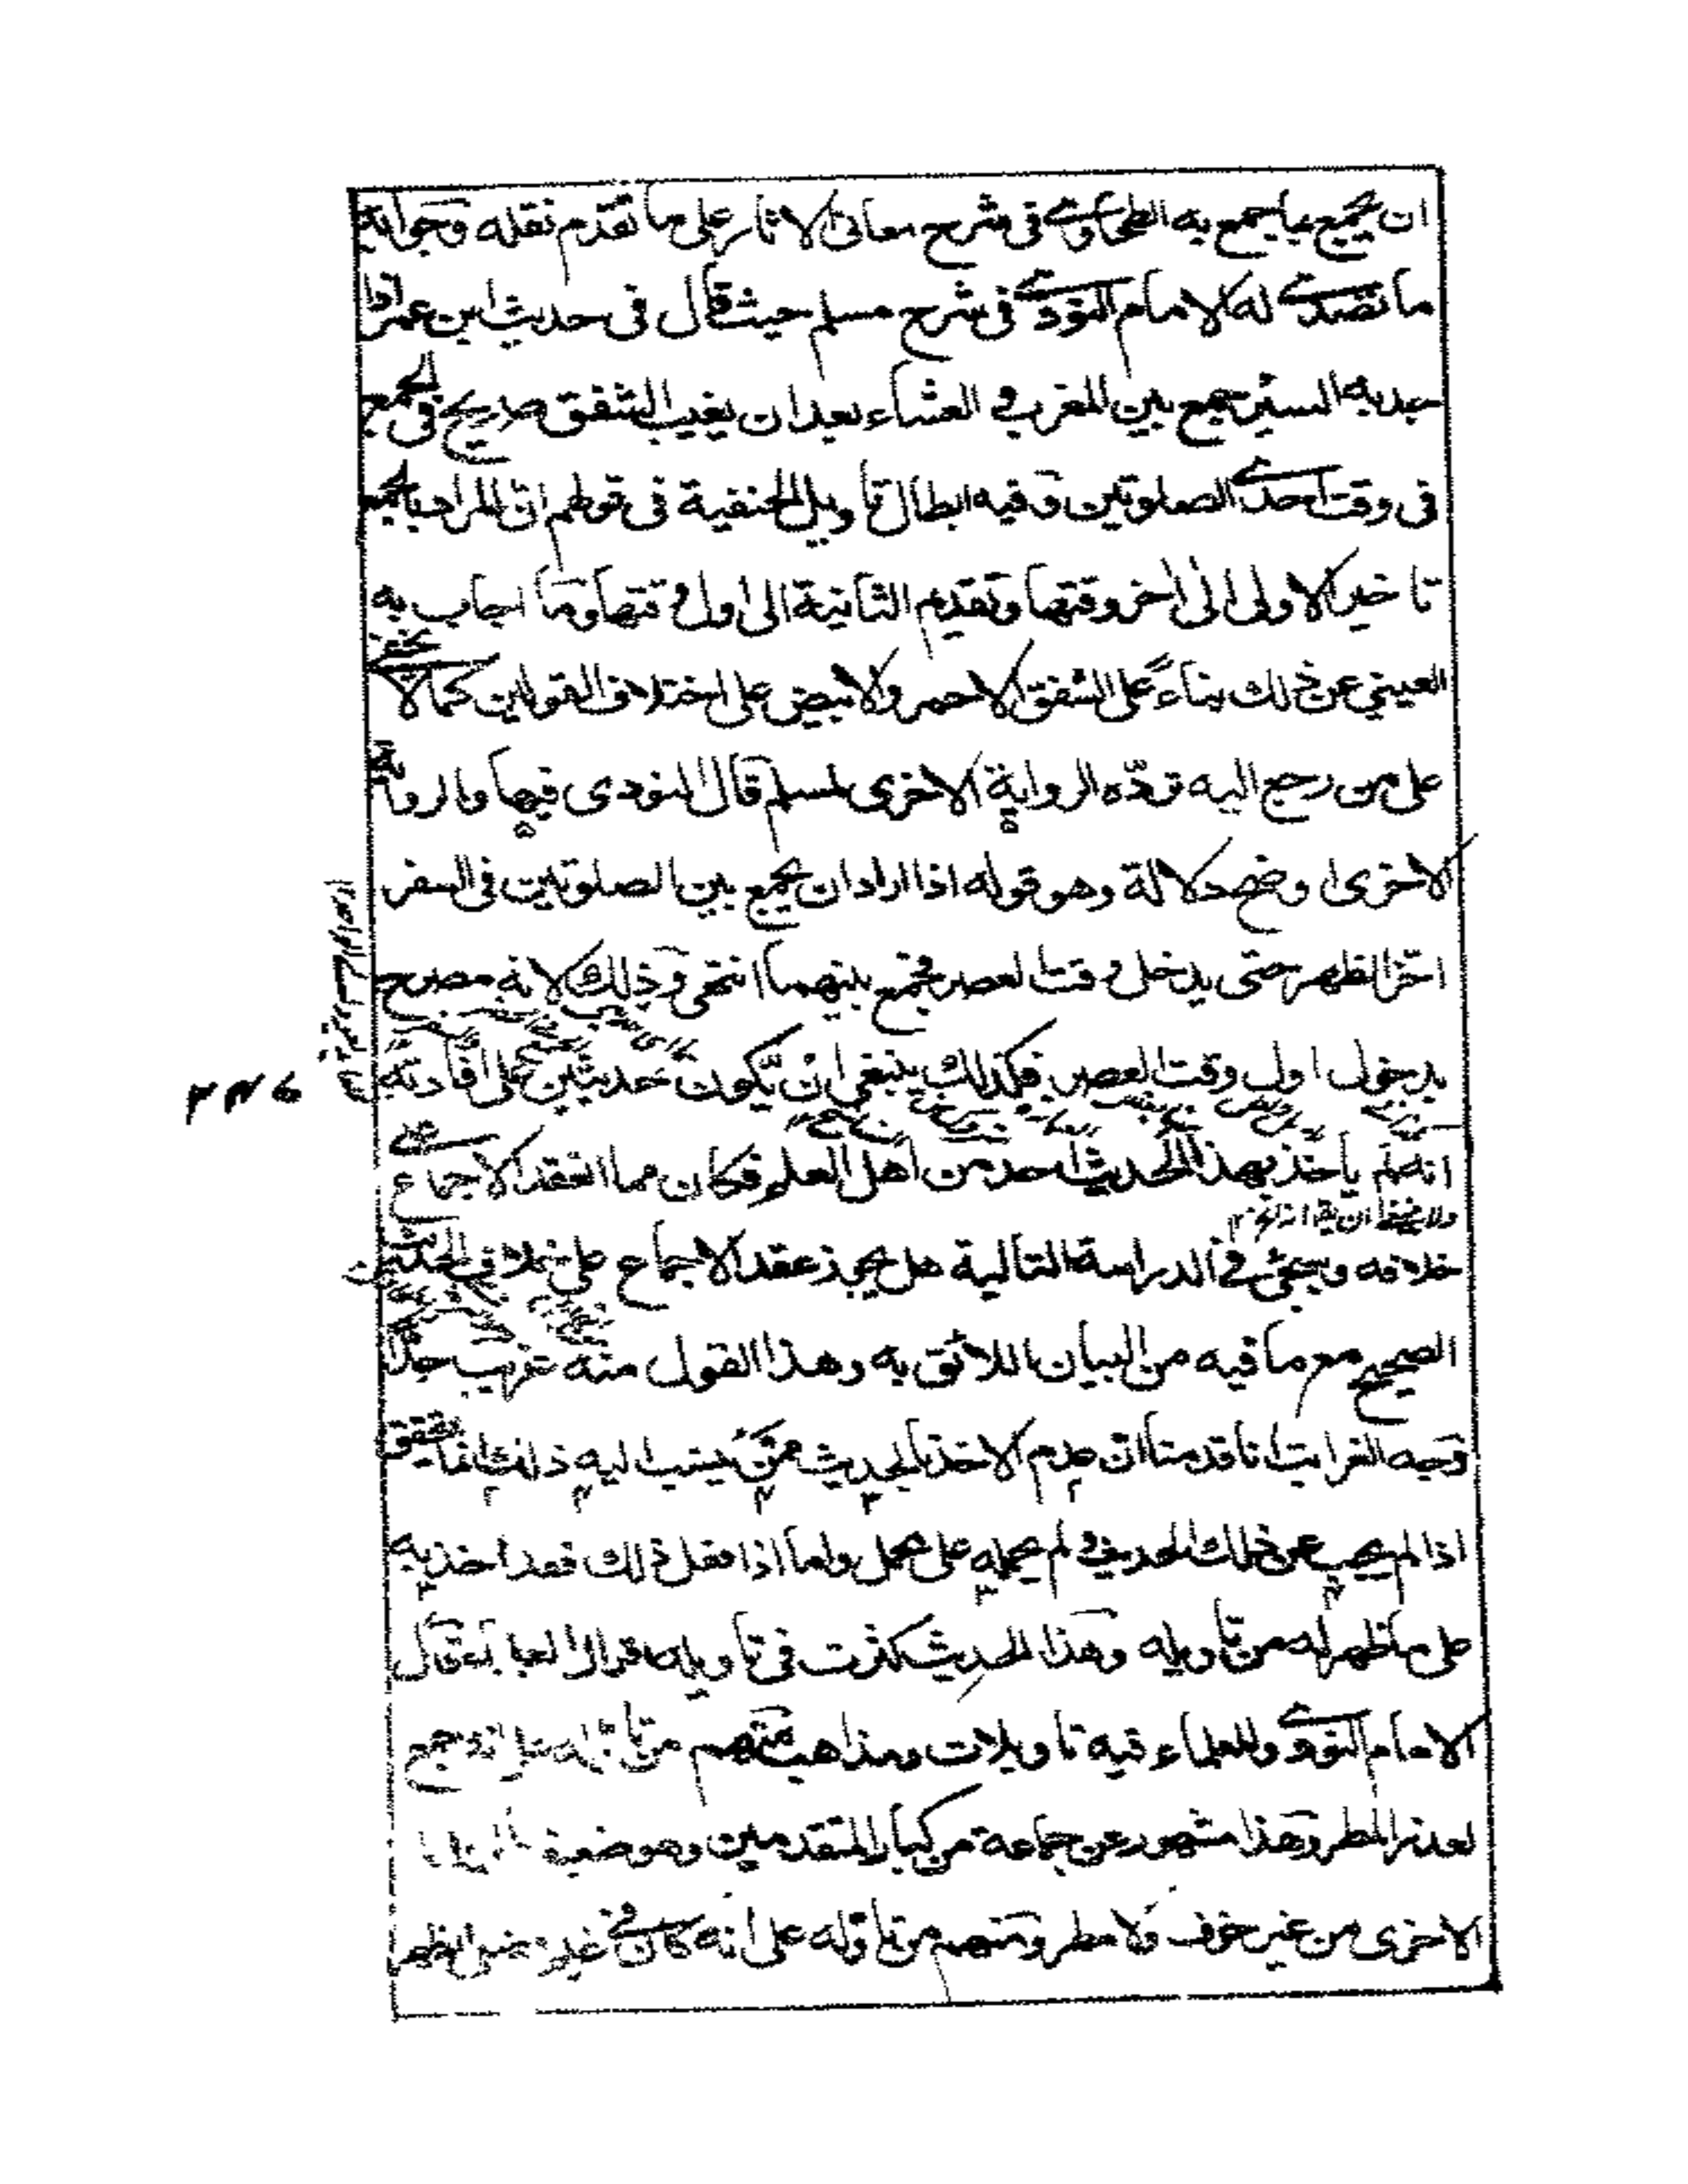 ان يجمع بما يجمع به الطحاوي في شرح معانى الاثار على ما تقدم نقله وجوابه
ما تصدى له الامام النووي في شرح مسلم حيث قال في حديث ابن عمر اذا
جد به السير جمع بين المغرب و العشاء بعد ان يغيب الشفق صريح في الجمع
في وقت احدى الصلوتين وفيه ابطال تاويل الحنفية في قولهم ان المراد بالجمع
تاخير الاولى الى اخر وقتها وتقديم الثانية الى اول وقتها وما اجاب به
العيني عن ذلك بناءً على الشفق الاحمر والابيض على اختلاف القولين كما لا يخفى
على من رجع اليه تردّه الرواية الاخرى لمسلم قال النووى فيها والرواية
الاخرى اوضح دلالة وهو قوله اذا اراد ان يجمع بين الصلوتين في السفر
اخّر الظهر حتى يدخل وقت العصر فجمع بينهما انتهى وذلك لانه مصرح
بدخول اول وقت العصر فكذلك ينبغي ان يكون
٢٤٦
انه لم ياخذ بهذا الحديث احد من اهل العلم فكان مما انعقد الاجماع على
خلافه وسيجئ في الدراسة التالية هل يجوز عقد الاجماع على خلاف الحديث
الصحيح مع ما فيه من البيان اللائق به وهذا القول منه غريب جدًّا
وجه الغرابة انا قدمنا ان عدم الاخذ بالحديث ممن ينسب اليه ذلك انما يتحقق
اذا لم يجب عن ذلك الحديث ولم يحمله على محمل واما اذا فعل ذلك فقد اخذ به
على ما ظهر له من تاويله وهذا الحديث كثرت في تاويله اقوال العلماء قال
الامام النووي وللعلماء فيه تاويلات ومذاهب منهم من تاوّله على انه جمع
لعذر المطر وهذا مشهور عن جماعة من كبار المتقدمين وهو ضعيف
الاخرى من غير خوف ولا مطر ومنهم من تاوّله على انه كان في غيم فصلى الظهر